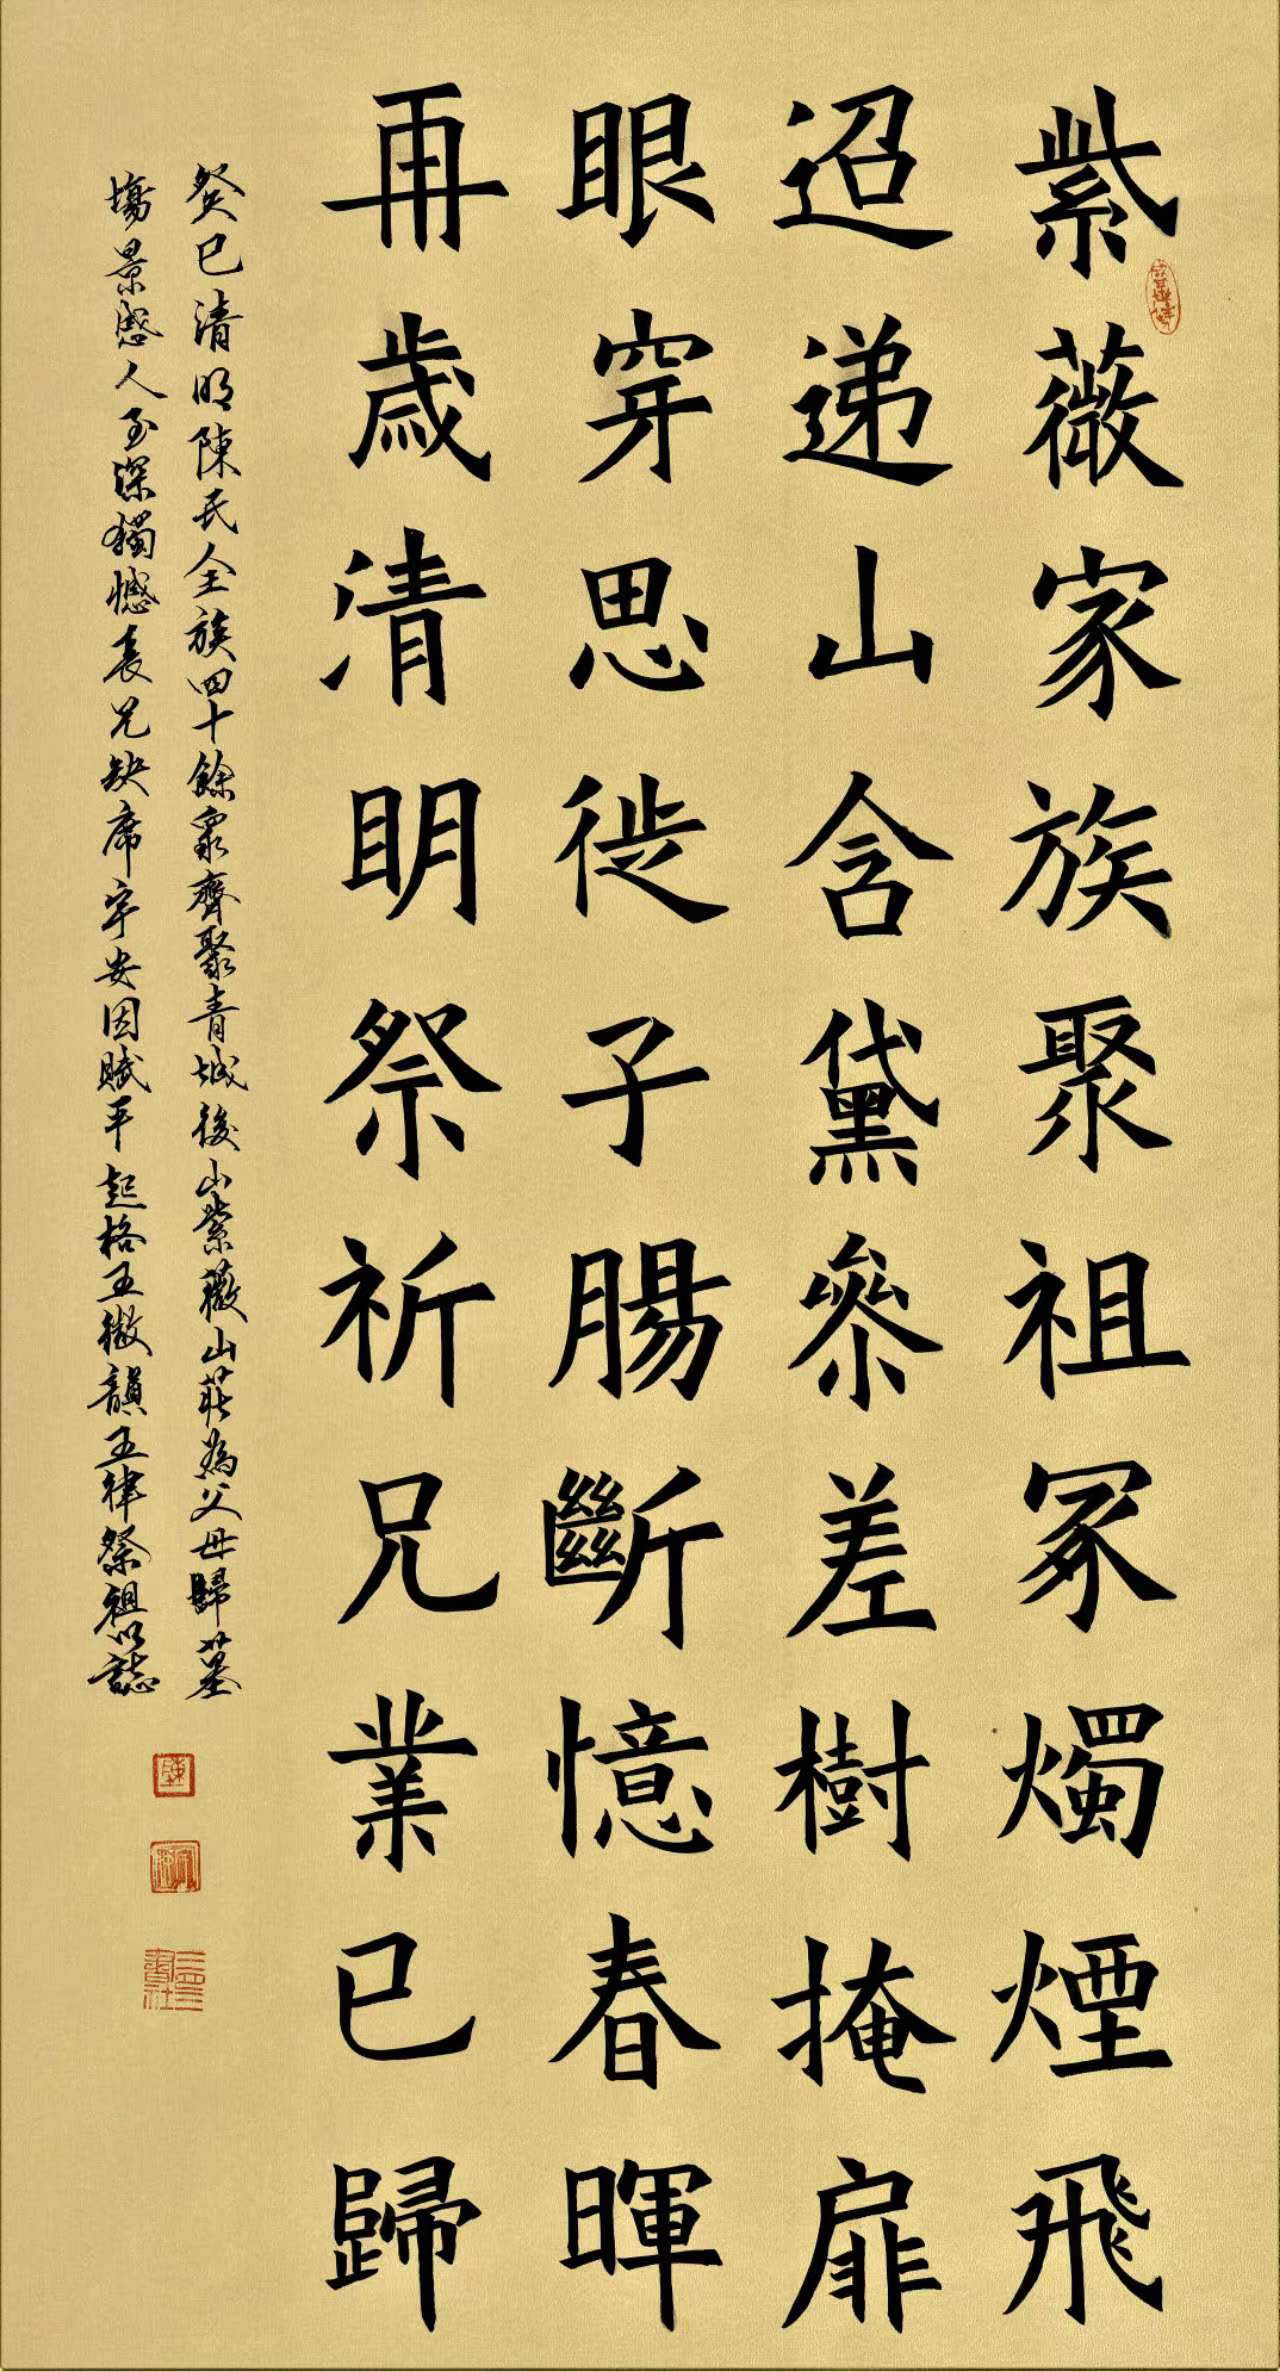 紫薇家族聚祖冢燭煙飛
迢递山含黛參差樹掩扉
眼穿思徙子腸斷憶春暉
再歲清明祭祈兄業已歸
癸巳清明陳氏全族四十餘眾齊聚青城後山紫薇山莊為父母歸墓
場景感人至深獨憾長兄缺席宇安因賦平起格五微韻五律祭祖以誌
陳